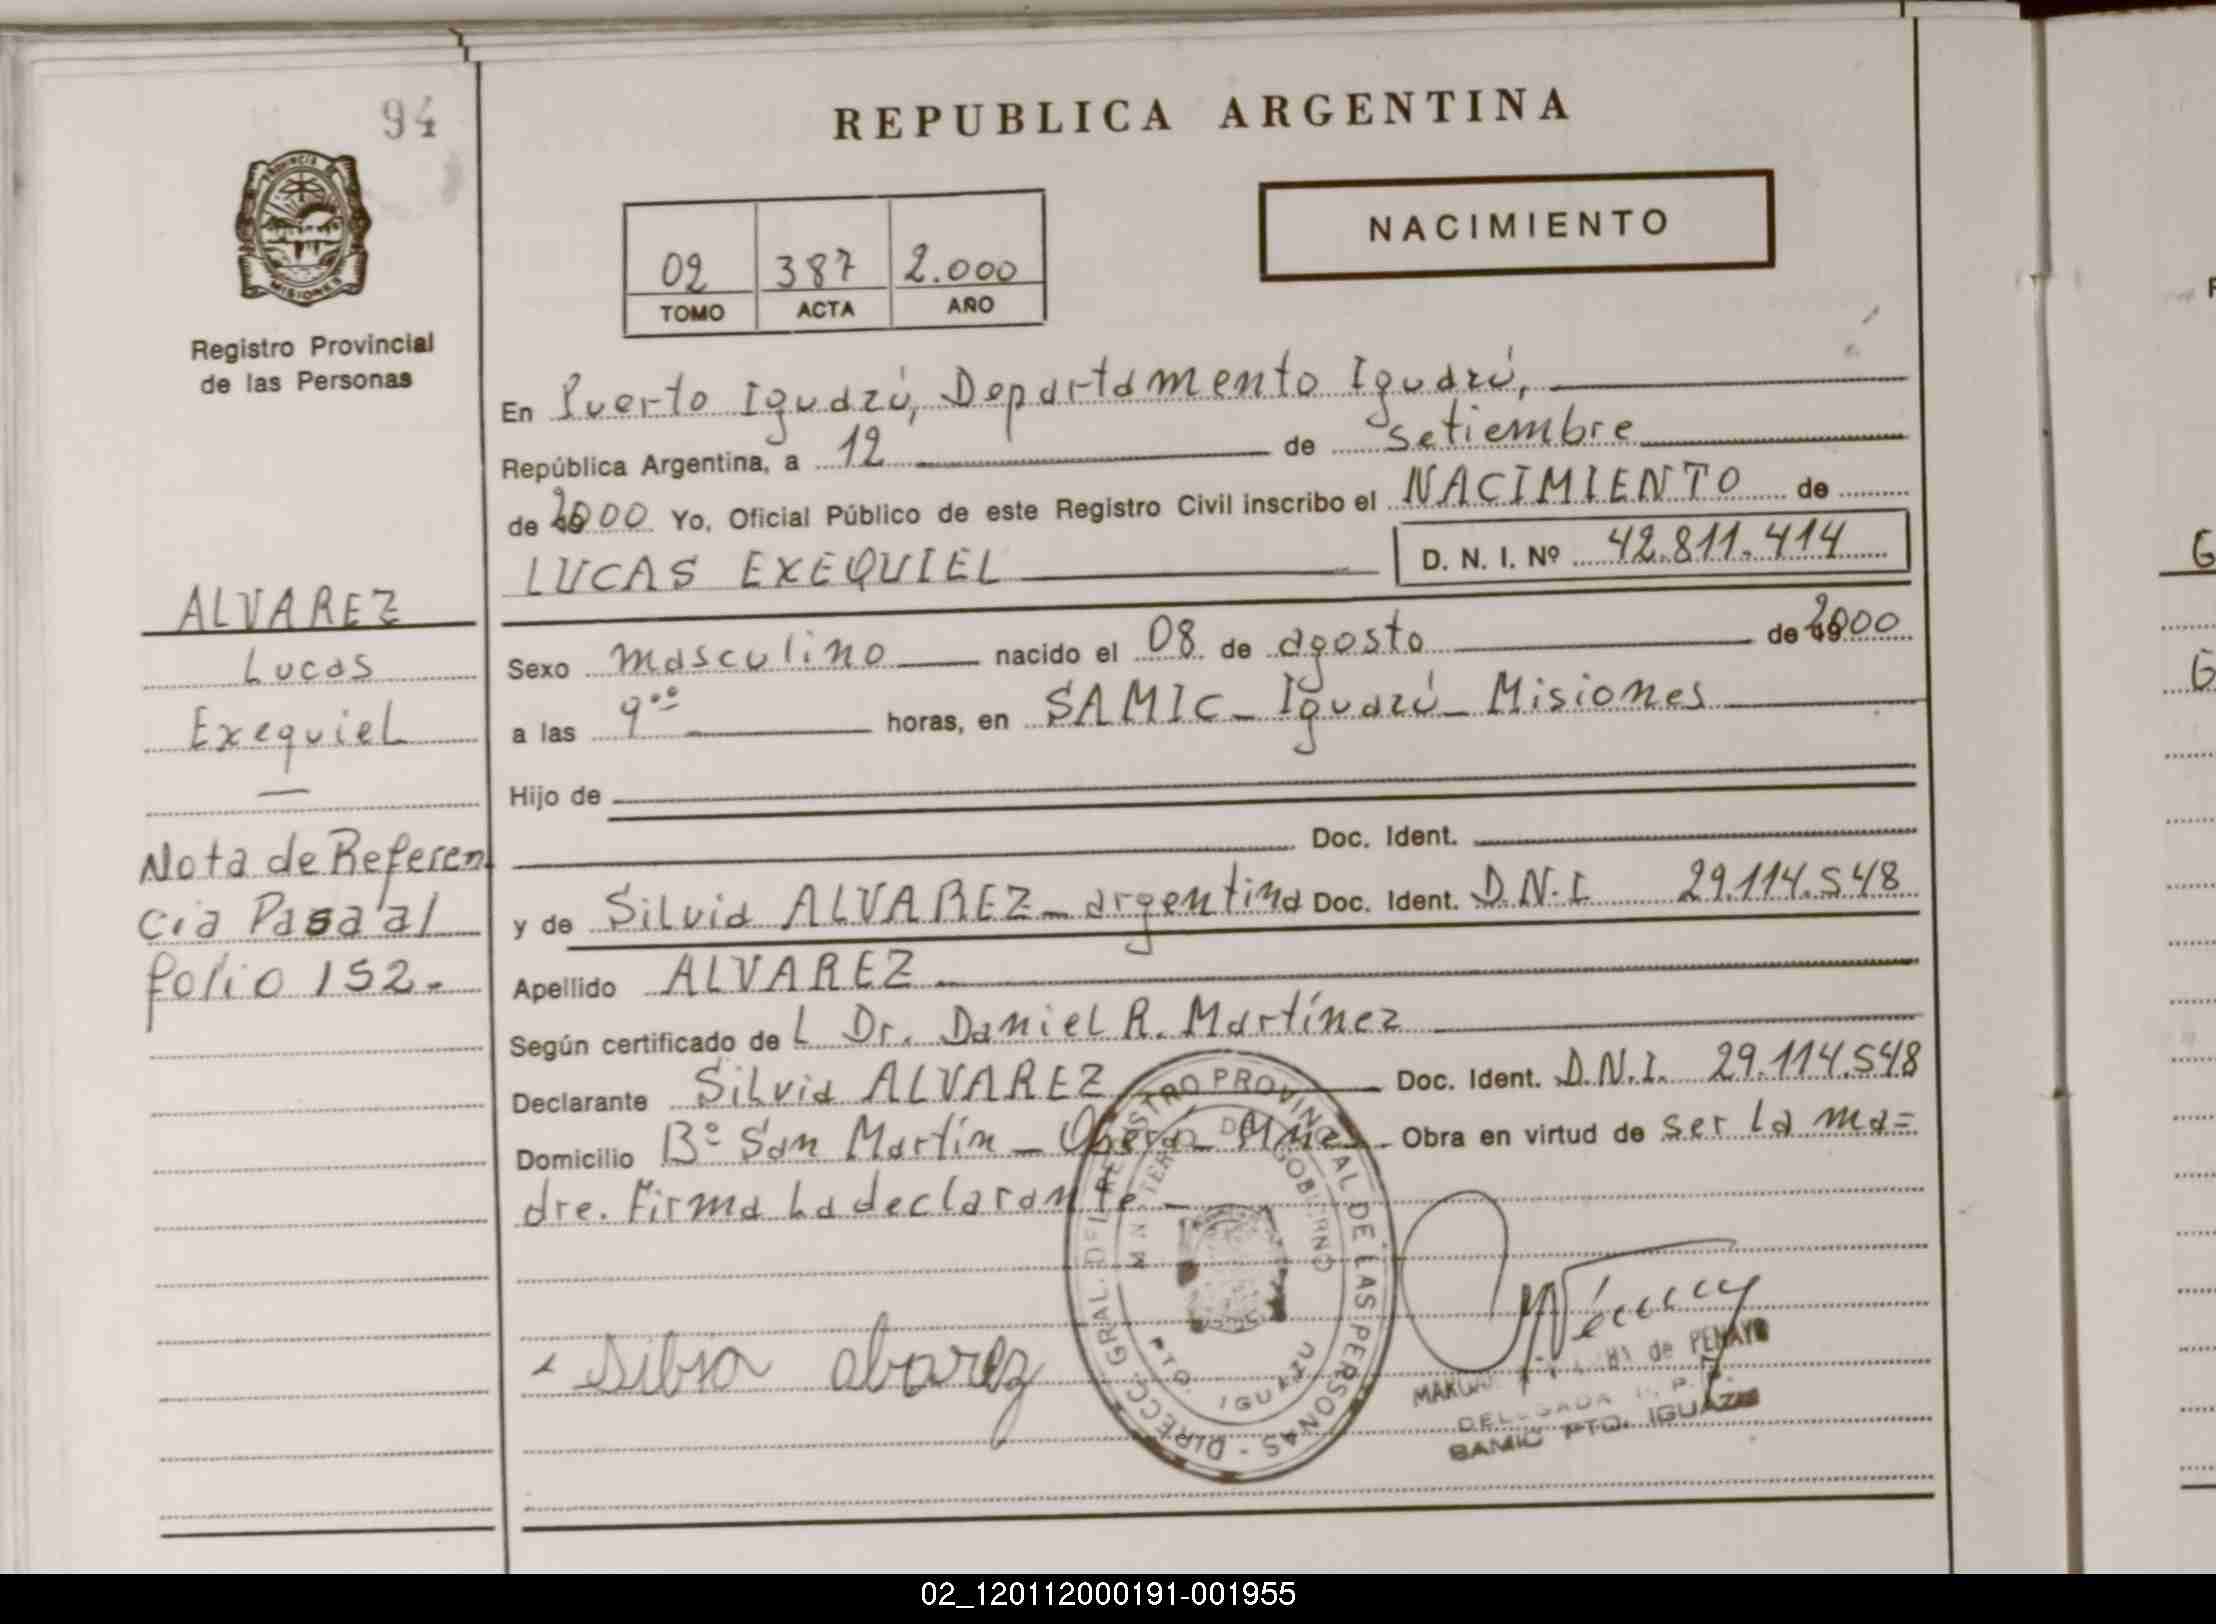 94
REPUBLICA ARGENTINA
PROVINCIA DE
MISIONES
Registro Provincial
de las Personas
02 387 2.000
TOMO ACTA AÑO
NACIMIENTO
En Puerto Iguazú, Departamento Iguazú,
República Argentina, a 12 de setiembre
de 2000 Yo, Oficial Público de este Registro Civil inscribo el NACIMIENTO de
LUCAS EXEQUIEL D. N. I. Nº 42.811.414
Sexo masculino nacido el 08 de agosto de 2000
a las 9⁰⁰ horas, en SAMIC - Iguazú - Misiones
Hijo de
Doc. Ident.
y de Silvia ALVAREZ - argentina Doc. Ident. D.N.I. 29.114.548
Apellido ALVAREZ
Según certificado de L Dr. Daniel R. Martínez
Declarante Silvia ALVAREZ Doc. Ident. D.N.I. 29.114.548
Domicilio Bº San Martín - Oberá - Mnes. Obra en virtud de ser la ma=
dre. Firma la declarante -
ALVAREZ
Lucas
Exequiel
Nota de Referen
cia Pasa al
folio 152.-
Silvia alvarez
DIRECC. GRAL. DEL REGISTRO PROVINCIAL DE LAS PERSONAS -
MINISTERIO DE GOBIERNO
PTO. IGUAZU
de PENAYO
DELEGADA R. P. P.
SAMIC PTO. IGUAZU
G
G
02_120112000191-001955